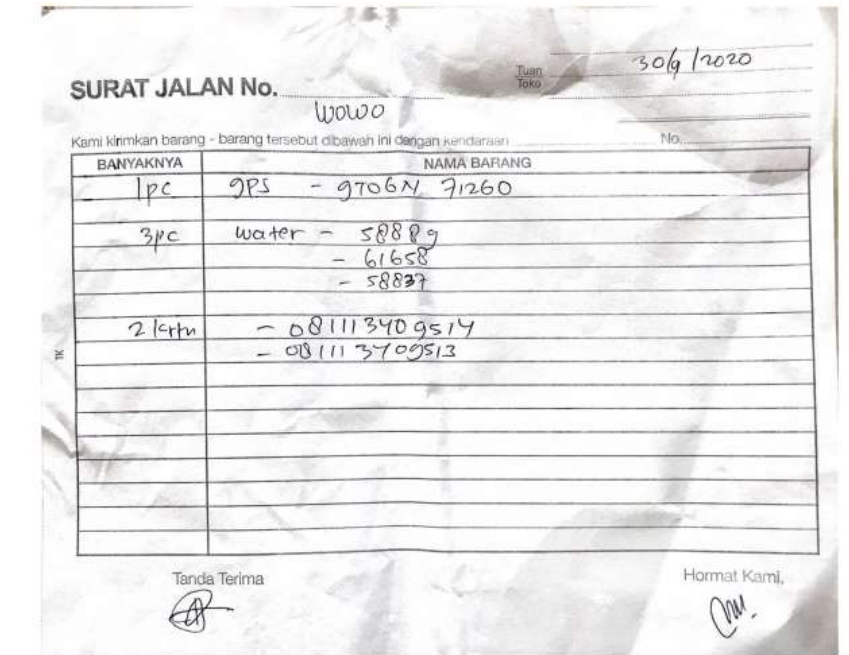 30/9/2020
Tuan
Toko
SURAT JALAN No.
wowo
Kami kirimkan barang - barang tersebut dibawah ini dengan kendaraan No.
BANYAKNYA NAMA BARANG
1pc GPS - GT06N 71260
3pc water - 58889
- 61658
- 58837
2 krtu - 081113409514
- 081113409513
TK
Tanda Terima Hormat Kami,